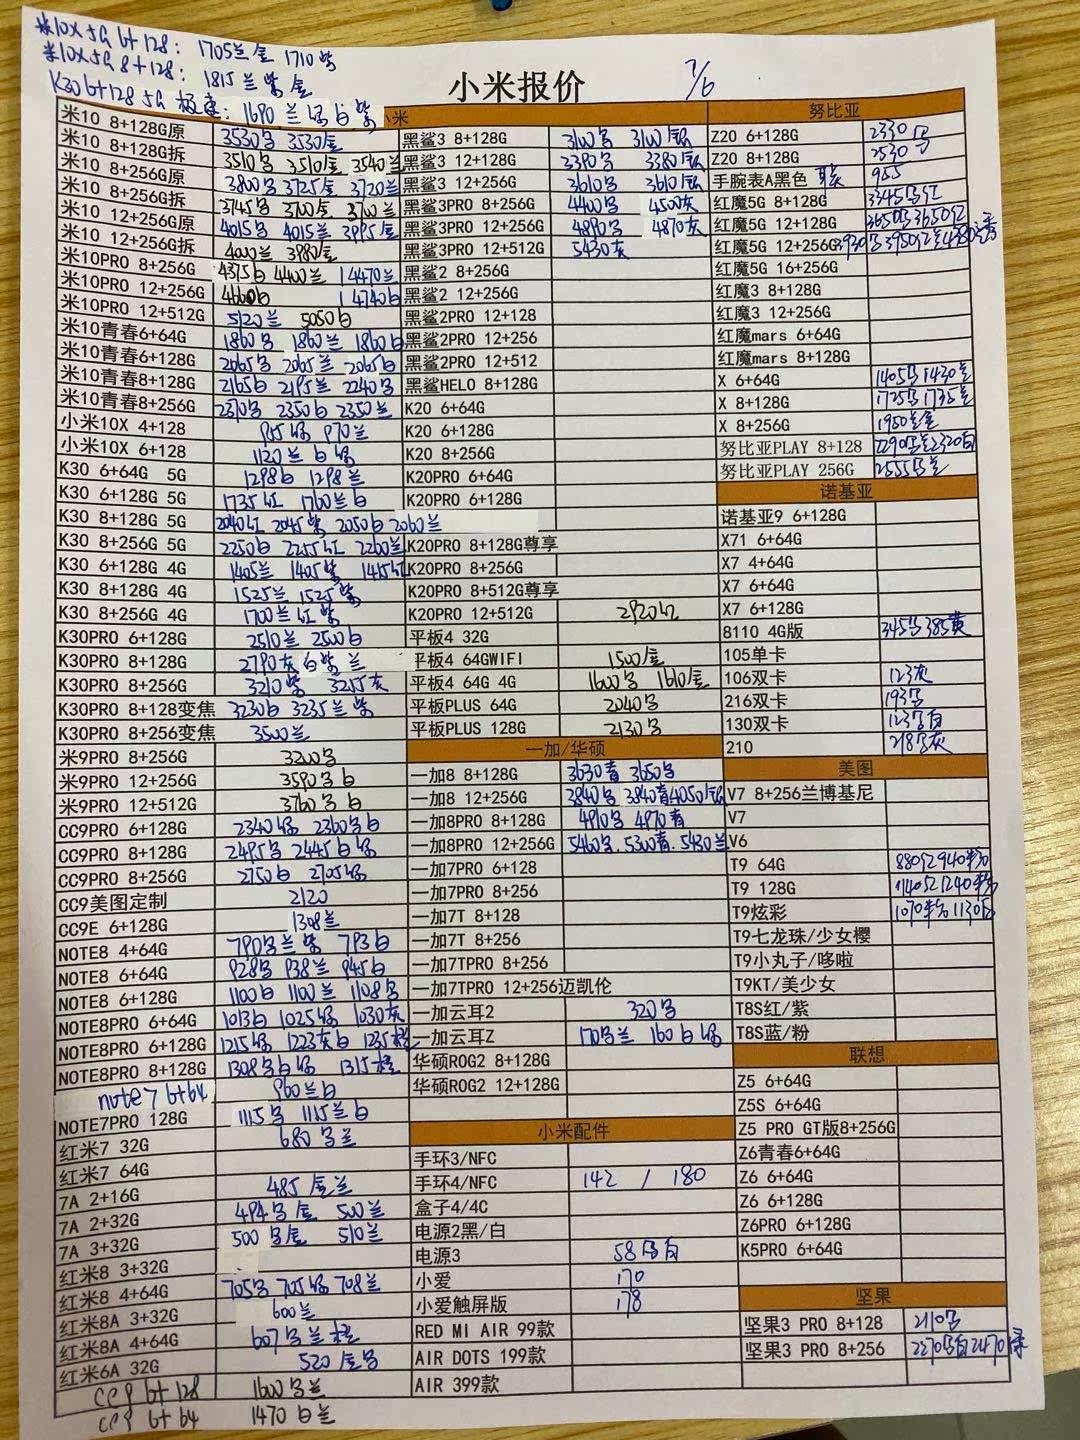 米10X 5G 6+128: 1705兰金 1710紫
米10X 5G 8+128: 1815兰紫金
K30 6+128 5G 极速: 1690兰绿白紫
小米报价 7/6
小米
米10 8+128G原 3530黑 3530金
米10 8+128G拆 3510黑 3510金 3540兰
米10 8+256G原 3800黑 3725金 3720兰
米10 8+256G拆 3745黑 3700金 3700兰
米10 12+256G原 4015黑 4015兰 3995金
米10 12+256G拆 4000兰 3980金
米10PRO 8+256G 4375白 4400兰 14470兰
米10PRO 12+256G 4660白 14740白
米10PRO 12+512G 5120兰 5050白
米10青春6+64G 1860黑 1860兰 1860白
米10青春6+128G 2065黑 2065兰 2065白
米10青春8+128G 2165白 2195兰 2240黑
米10青春8+256G 2370黑 2350白 2350兰
小米10X 4+128 955绿 970兰
小米10X 6+128 1120兰白绿
K30 6+64G 5G 1298白 1298兰
K30 6+128G 5G 1735红 1760兰白
K30 8+128G 5G 2040红 2045紫 2050白 2060兰
K30 8+256G 5G 2250白 2255红 2260兰
K30 6+128G 4G 1405兰 1405紫 1415红
K30 8+128G 4G 1525兰 1525紫
K30 8+256G 4G 1700兰红紫
K30PRO 6+128G 2510兰 2500白
K30PRO 8+128G 2790灰白紫兰
K30PRO 8+256G 3210紫 3255灰
K30PRO 8+128变焦 3230白 3235兰紫
K30PRO 8+256变焦 3500兰
米9PRO 8+256G 3200黑
米9PRO 12+256G 3590黑白
米9PRO 12+512G 3760黑白
CC9PRO 6+128G 2340绿 2360黑白
CC9PRO 8+128G 2495黑 2445白绿
CC9PRO 8+256G 2750白 2705绿
CC9美图定制 2120
CC9E 6+128G 1308兰
NOTE8 4+64G 790黑兰紫 793白
NOTE8 6+64G 928黑 938兰 945白
NOTE8 6+128G 1100白 1100兰 1108黑
NOTE8PRO 6+64G 1013白 1025绿 1030灰
NOTE8PRO 6+128G 1215绿 1223灰白 1235橙
NOTE8PRO 8+128G 1308黑白绿 1315橙
note7 6+64 960兰白
NOTE7PRO 128G 1115黑 1115兰白
红米7 32G 680黑兰
红米7 64G
7A 2+16G 485金兰
7A 2+32G 494黑金 500兰
7A 3+32G 500黑金 510兰
红米8 3+32G
红米8 4+64G 705黑 705绿 708兰
红米8A 3+32G 600兰
红米8A 4+64G 607黑兰橙
红米6A 32G 520金黑
CC9 6+128 1600黑兰
CC9 6+64 1470白兰
黑鲨3 8+128G 3100黑 3100银
黑鲨3 12+128G 3390黑 3380银
黑鲨3 12+256G 3610黑 3610银
黑鲨3PRO 8+256G 4400黑 4500灰
黑鲨3PRO 12+256G 4890黑 4870灰
黑鲨3PRO 12+512G 5430灰
黑鲨2 8+256G
黑鲨2 12+256G
黑鲨2PRO 12+128
黑鲨2PRO 12+256
黑鲨2PRO 12+512
黑鲨HELO 8+128G
K20 6+64G
K20 6+128G
K20 8+256G
K20PRO 6+64G
K20PRO 6+128G
K20PRO 8+128G尊享
K20PRO 8+256G
K20PRO 8+512G尊享
K20PRO 12+512G 2920红
平板4 32G
平板4 64GWIFI 1500金
平板4 64G 4G 1600黑 1610金
平板PLUS 64G 2040黑
平板PLUS 128G 2130黑
一加/华硕
一加8 8+128G 3630青 3650黑
一加8 12+256G 3840黑 3840青 4050银
一加8PRO 8+128G 4910黑 4970青
一加8PRO 12+256G 5460黑.5300青.5430兰
一加7PRO 6+128
一加7PRO 8+256
一加7T 8+128
一加7T 8+256
一加7TPRO 8+256
一加7TPRO 12+256迈凯伦
一加云耳2 320黑
一加云耳Z 170黑兰 160白绿
华硕ROG2 8+128G
华硕ROG2 12+128G
小米配件
手环3/NFC
手环4/NFC 142 / 180
盒子4/4C
电源2黑/白
电源3 58黑白
小爱 170
小爱触屏版 178
RED MI AIR 99款
AIR DOTS 199款
AIR 399款
努比亚
Z20 6+128G 2330黑
Z20 8+128G 2530黑
手腕表A黑色 955
红魔5G 8+128G 3345黑红
红魔5G 12+128G 3650黑3650红
红魔5G 12+256G 3930黑3950红兰4380透
红魔5G 16+256G
红魔3 8+128G
红魔3 12+256G
红魔mars 6+64G
红魔mars 8+128G
X 6+64G 1405黑1430兰
X 8+128G 1725黑1735兰
X 8+256G 1950兰金
努比亚PLAY 8+128 2290黑兰2320白
努比亚PLAY 256G 2555黑兰
诺基亚
诺基亚9 6+128G
X71 6+64G
X7 4+64G
X7 6+64G
X7 6+128G
8110 4G版 345黑385黄
105单卡
106双卡 123灰
216双卡 193黑
130双卡 123黑白
210 218黑灰
美图
V7 8+256兰博基尼
V7
V6
T9 64G 880红940粉
T9 128G 1140红1240粉
T9炫彩 1070粉 1130白
T9七龙珠/少女樱
T9小丸子/哆啦
T9KT/美少女
T8S红/紫
T8S蓝/粉
联想
Z5 6+64G
Z5S 6+64G
Z5 PRO GT版8+256G
Z6青春6+64G
Z6 6+64G
Z6 6+128G
Z6PRO 6+128G
K5PRO 6+64G
坚果
坚果3 PRO 8+128 2110黑
坚果3 PRO 8+256 2270黑白2470绿